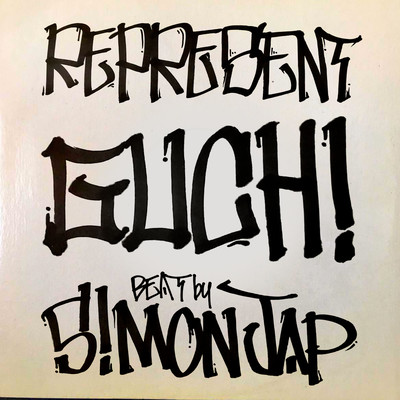 REPRESENT
GUCH!
BEAT by
S!MON JAP